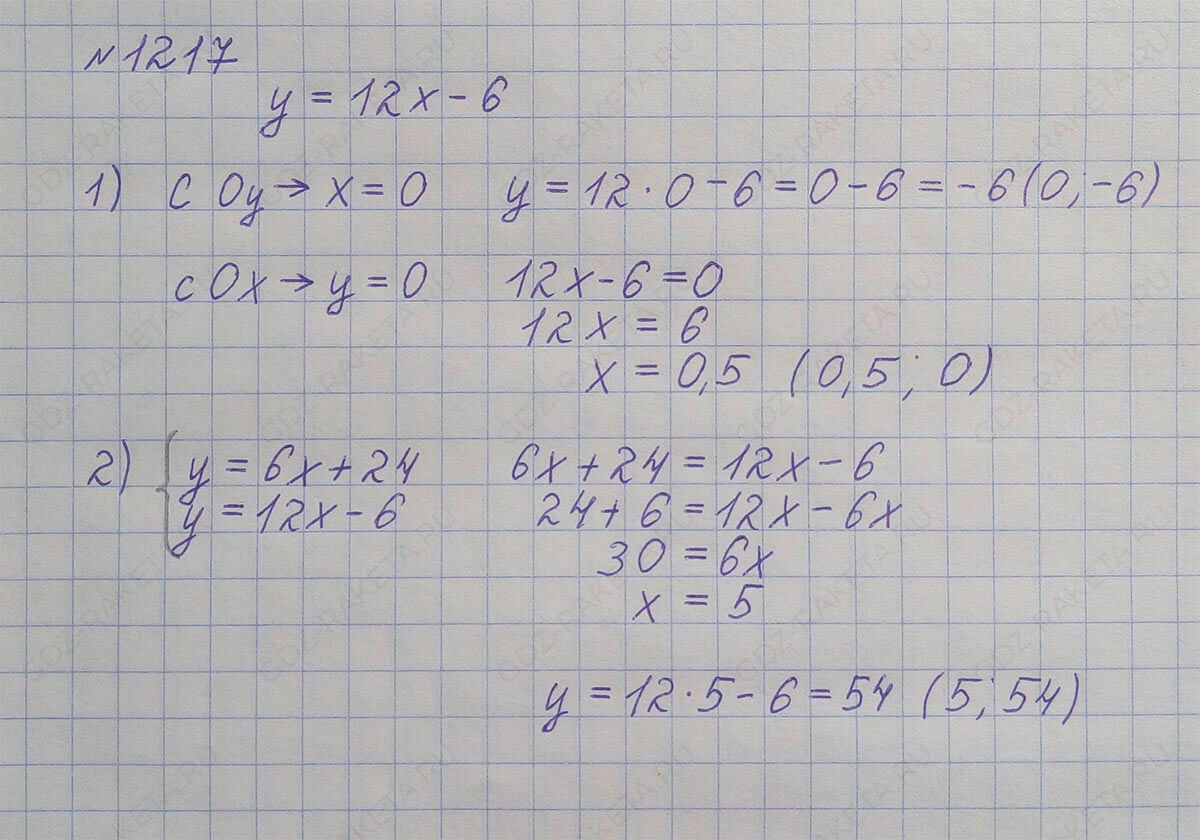 №1217
y = 12x - 6
1) С Oy → x = 0 y = 12·0 - 6 = 0 - 6 = -6 (0; -6)
с Ox → y = 0 12x - 6 = 0
12x = 6
x = 0,5 (0,5; 0)
2) { y = 6x + 24 6x + 24 = 12x - 6
y = 12x - 6 24 + 6 = 12x - 6x
30 = 6x
x = 5
y = 12·5 - 6 = 54 (5; 54)
GDZ-RAKETA.RU